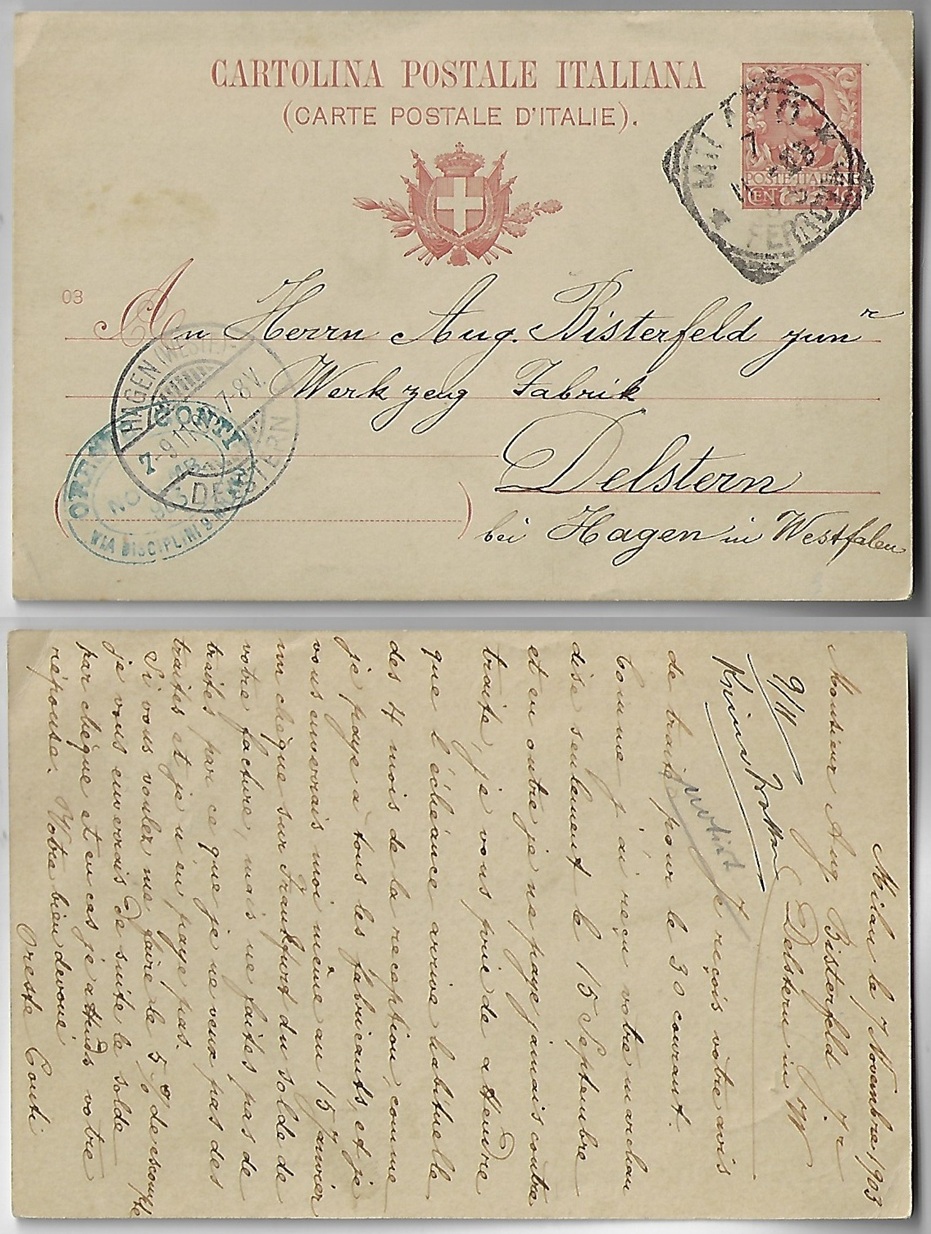 CARTOLINA POSTALE ITALIANA
(CARTE POSTALE D'ITALIE).
MILANO
7
11-03
FERROVIA
POSTE ITALIANE
03
An Herrn Aug. Bisterfeld junr
Werkzeug Fabrik
Delstern
bei Hagen in Westfalen
HAGEN (WESTF.)
7-9.11
7-8V.
DELSTERN
CONTI
NO
VIA DISCIPLINI 9
Milan le 7 Novembre 1903
Monsieur Aug Bisterfeld jr
Delstern in W
9/11
notirt
Je reçois votre avis
de traite pour le 30 courant.
Comme j'ai reçu votre marchan
dise seulement le 15 Septembre
et en outre je ne paye jamais contre
traite, je vous prie de attendre
que l'échéance arrive habituelle
des 4 mois de la reception, comme
je paye a tous les fabricants, et je
vous enverrais moi même au 15 Janvier
un cheque sur Frankfurt du solde de
votre facture, mais ne faites pas de
traites par ce que je ne veux pas des
traites et je n'en paye pas.
Si vous voulez me faire le 5% d'escompte
je vous enverrais de suite le solde
par chèque et en cas j'attends votre
réponse. Votre bien devoué
Oreste Conti